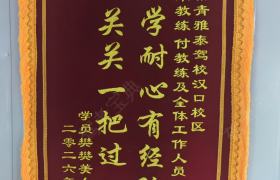 青雅泰驾校汉口校区
教练付教练及全体工作人员
学耐心有经验
关关一把过
学员樊樊美
二零二六年